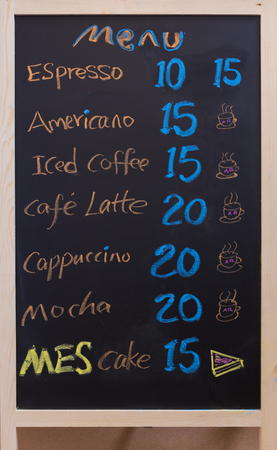 Menu
Espresso 10 15
Americano 15
Iced Coffee 15
Café Latte 20
Cappuccino 20
Mocha 20
MES cake 15